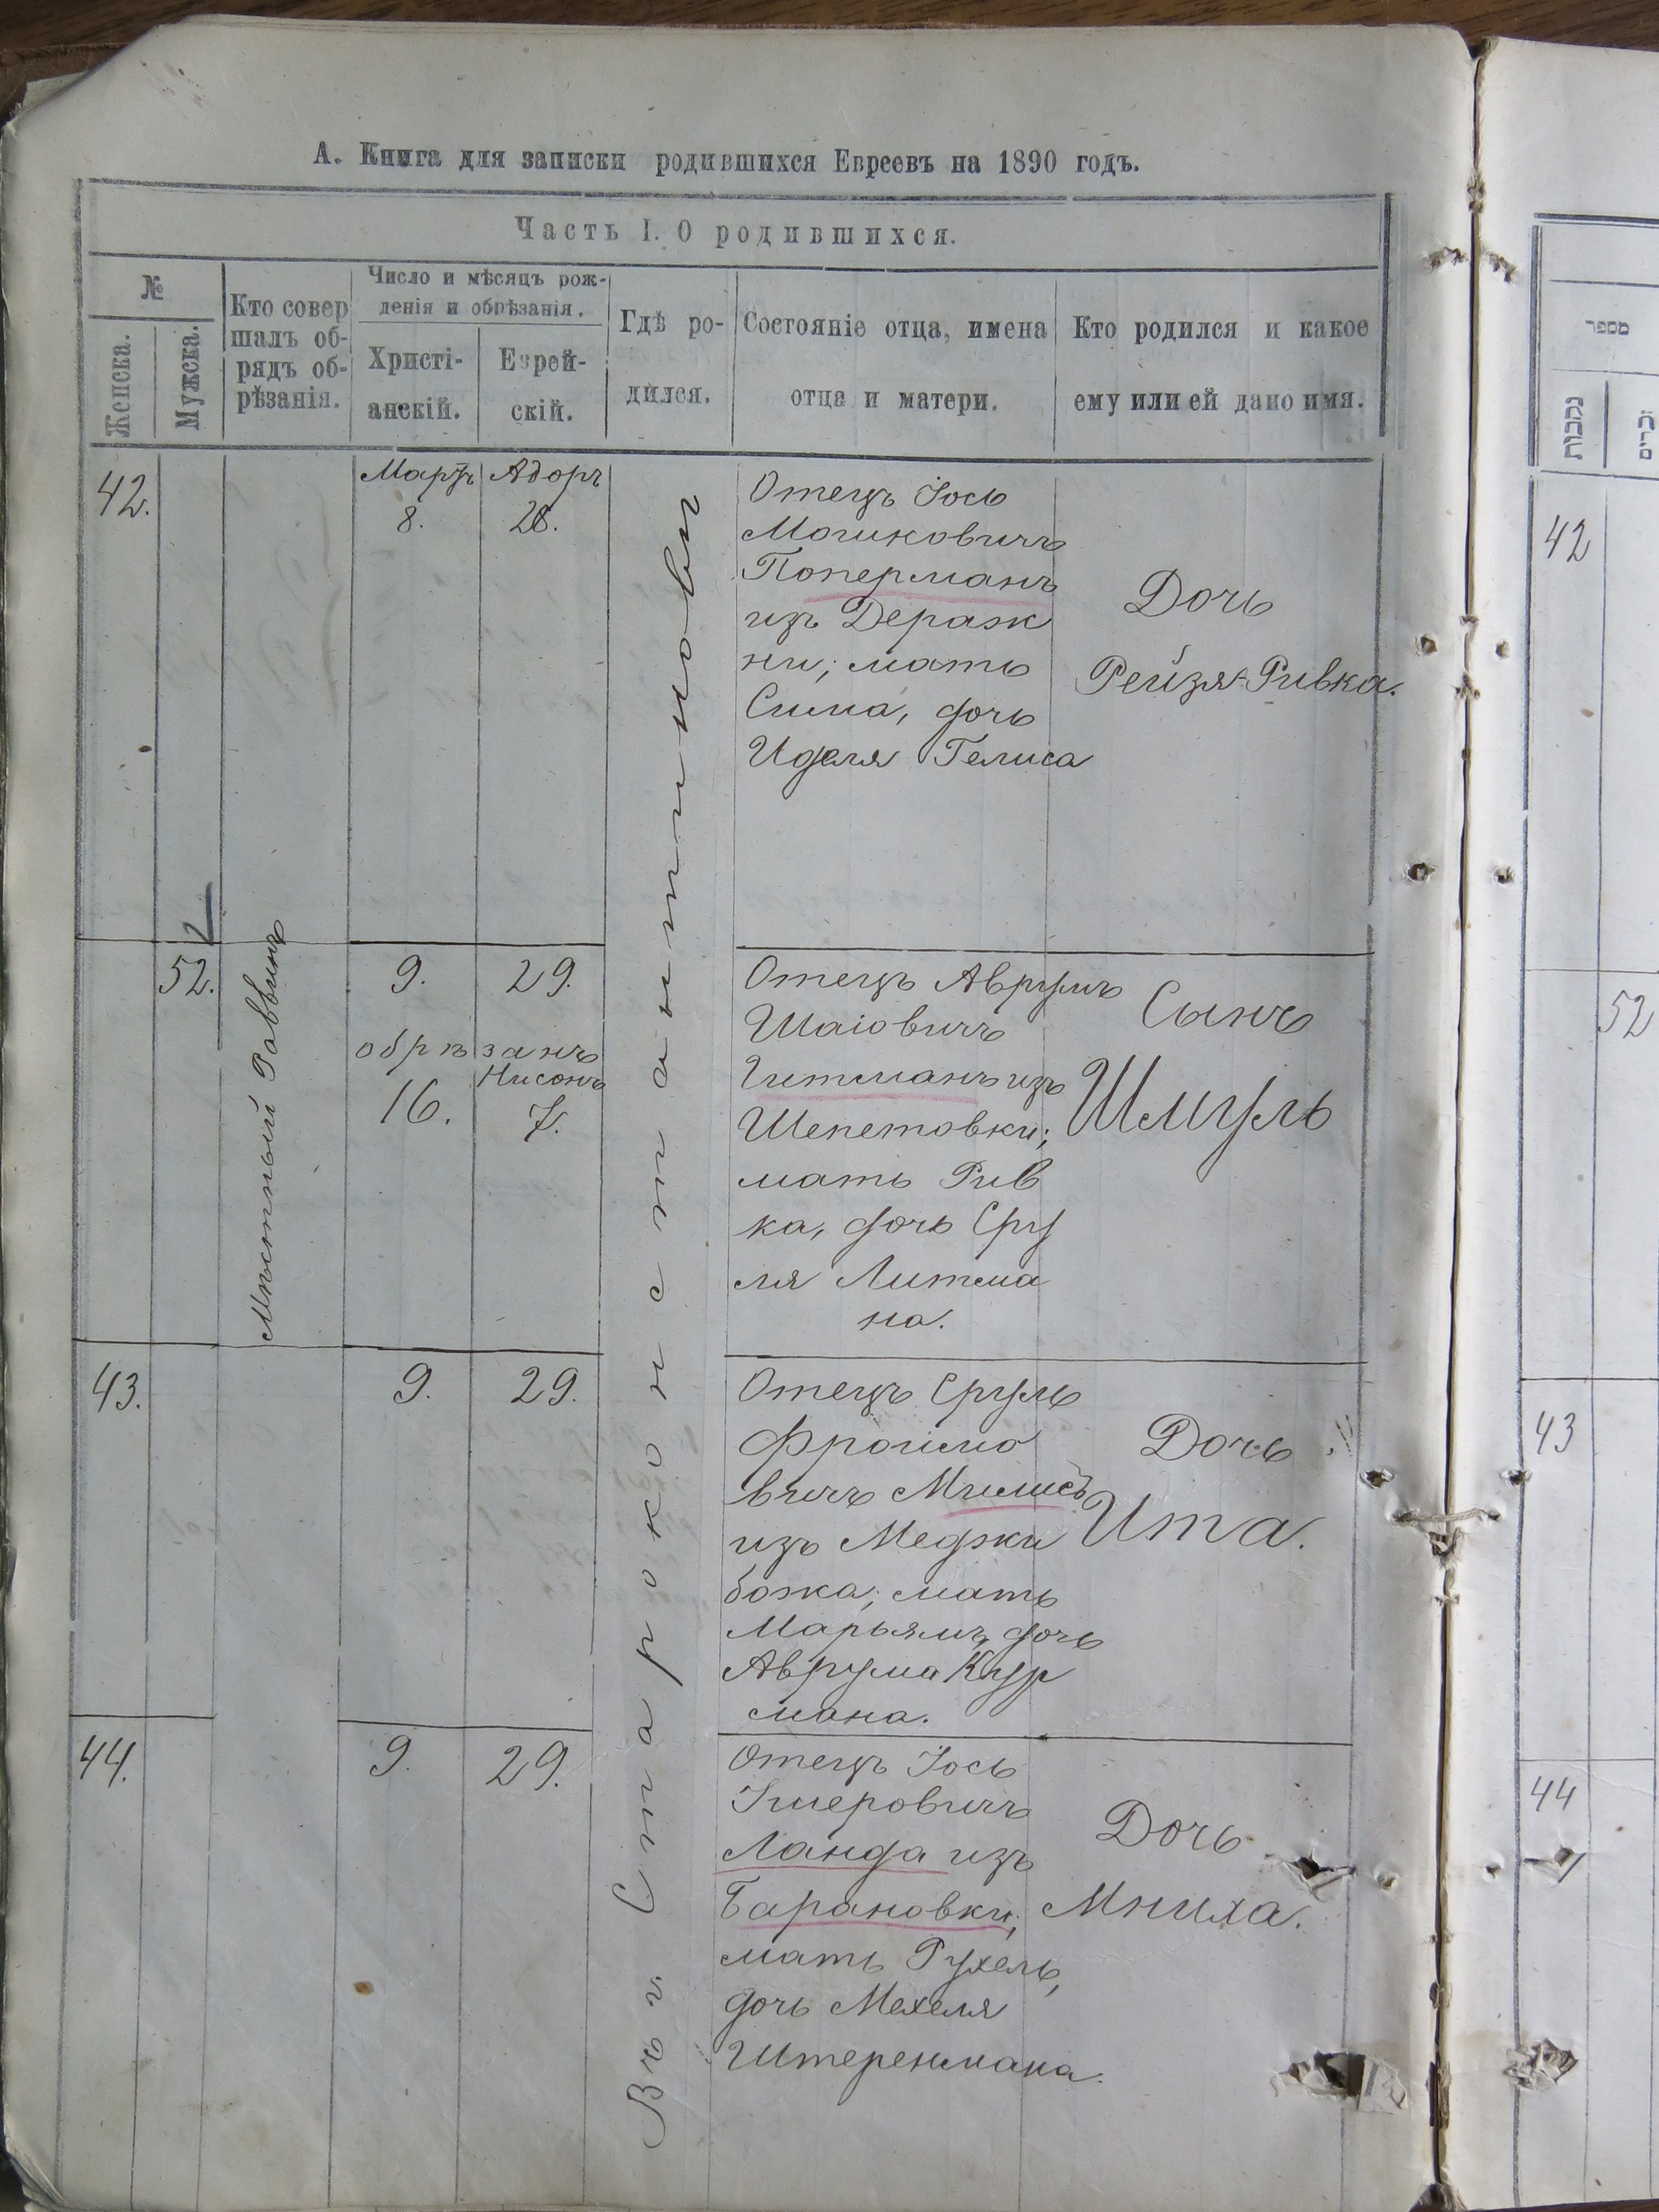 А. Книга для записки родившихся Евреевъ на 1890 годъ.
Часть I. О родившихся.
№
Женска.
Мужска.
Кто совер
шалъ об-
рядъ об-
рѣзанія.
Число и мѣсяцъ рож-
денія и обрѣзанія.
Христі-
анскій.
Еврей-
скій.
Гдѣ ро-
дился.
Состояніе отца, имена
отца и матери.
Кто родился и какое
ему или ей дано имя.
42.
Мартъ
8.
Адоръ
28.
Отецъ Іось
Мошковичъ
Поперманъ
изъ Дераж
ни; мать
Сима, дочь
Иделя Гелиса
Дочь
Рейзя-Ривка.
Въ г. Староконстантиновѣ
Мѣстный Раввинъ
52.
9.
29.
обрѣзанъ
Нисонъ
16.
7.
Отецъ Аврумъ
Шаіовичъ
Гитманъ изъ
Шепетовки;
мать Рив
ка, дочь Сру
ля Литма
на.
Сынъ
Шмуль
43.
9.
29.
Отецъ Сруль
Фроимо
вичъ Милисъ
изъ Меджи
божа; мать
Марьямъ, дочь
Аврума Кур
мана.
Дочь
Ита.
44.
9.
29.
Отецъ Іось
Ланда изъ
Барановки;
мать Рухель,
дочь Мехеля
Штеренмана.
Дочь
Мниха.
מספר
נקבות
זכרים
42
52
43
44